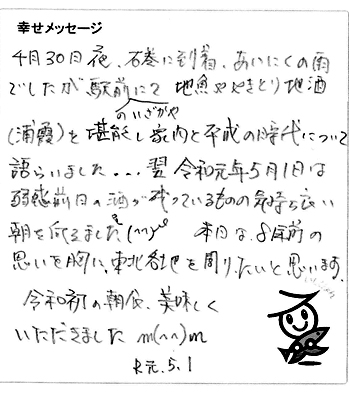 幸せメッセージ
4月30日夜、石巻に到着、あいにくの雨
でしたが駅前にて地魚ややきとり地酒
のいざかや
(浦霞)を堪能し家内と平成の時代について
語らいました...翌令和元年5月1日は
弱冠前日の酒が残っているものの気持ち良い
朝を迎えました(^^)。本日は、8年前の
思いを胸に、東北各地を周りたいと思います。
令和初の朝食、美味しく
いただきました m(^^)m
R元.5.1